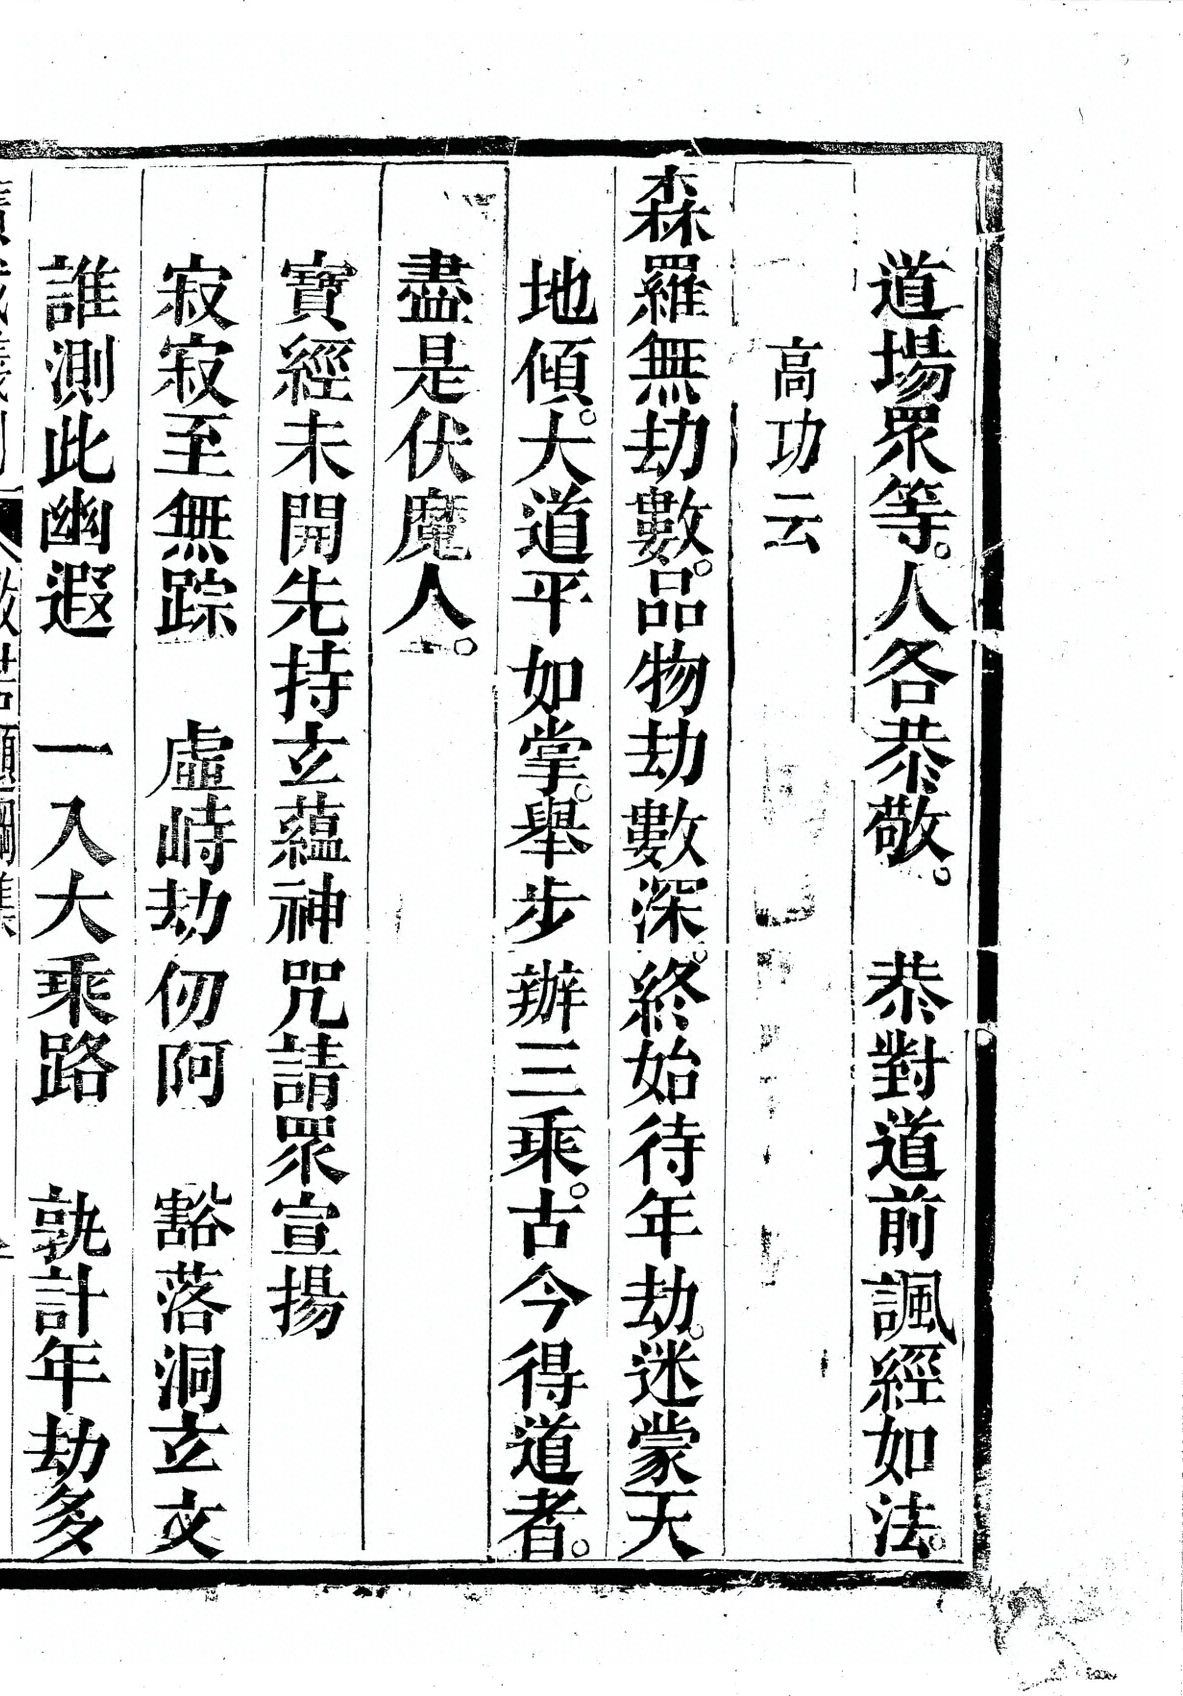 道場眾等。人各恭敬。　恭對道前諷經如法。
高功云
森羅無劫數。品物劫數深。終始待年劫。迷蒙天
地傾。大道平如掌。舉步辦三乘。古今得道者。
盡是伏魔人。
寶經未開先持玄蘊神咒請眾宣揚
寂寂至無踪　虛峙劫仞阿　豁落洞玄文
誰測此幽遐　一入大乘路　孰計年劫多